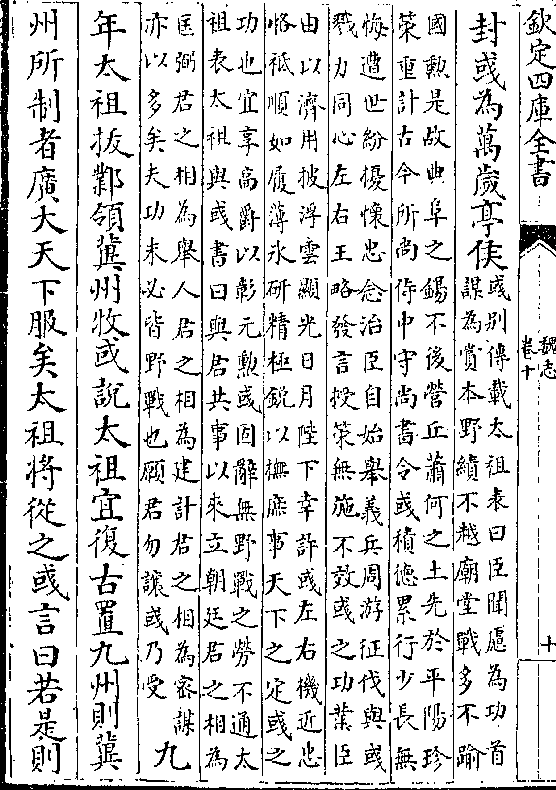 欽定四庫全書
魏志
卷十
十
封彧為萬歲亭侯
彧别傳載太祖表曰臣聞慮為功首
謀為賞本野績不越廟堂戰多不踰
國勲是故曲阜之錫不後營丘蕭何之土先於平陽珍
策重計古今所尚侍中守尚書令彧積德累行少長無
悔遭世紛擾懷忠念治臣自始舉義兵周游征伐與彧
戮力同心左右王略發言授策無施不效彧之功業臣
由以濟用披浮雲顯光日月陛下幸許彧左右機近忠
恪祗順如履薄氷研精極鋭以撫庶事天下之定彧之
功也宜享高爵以彰元勲彧固辭無野戰之勞不通太
祖表太祖與彧書曰與君共事以來立朝廷君之相為
匡弼君之相為舉人君之相為建計君之相為密謀
亦以多矣夫功未必皆野戰也願君勿讓彧乃受
九
年太祖拔鄴領冀州牧或說太祖宜復古置九州則冀
州所制者廣大天下服矣太祖將從之彧言曰若是則